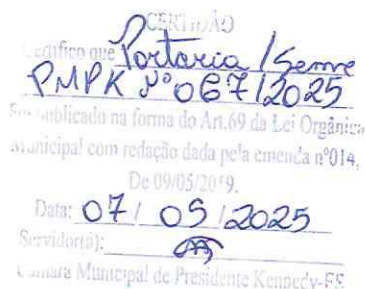 CERTIDÃO
Certifico que Portaria / Seme
PMPK Nº 067/2025
publicado na forma do Art.69 da Lei Orgânica
Municipal com redação dada pela emenda nº014,
De 09/05/2019.
Data: 07 / 05 / 2025
Servidor(a):
Câmara Municipal de Presidente Kennedy-ES